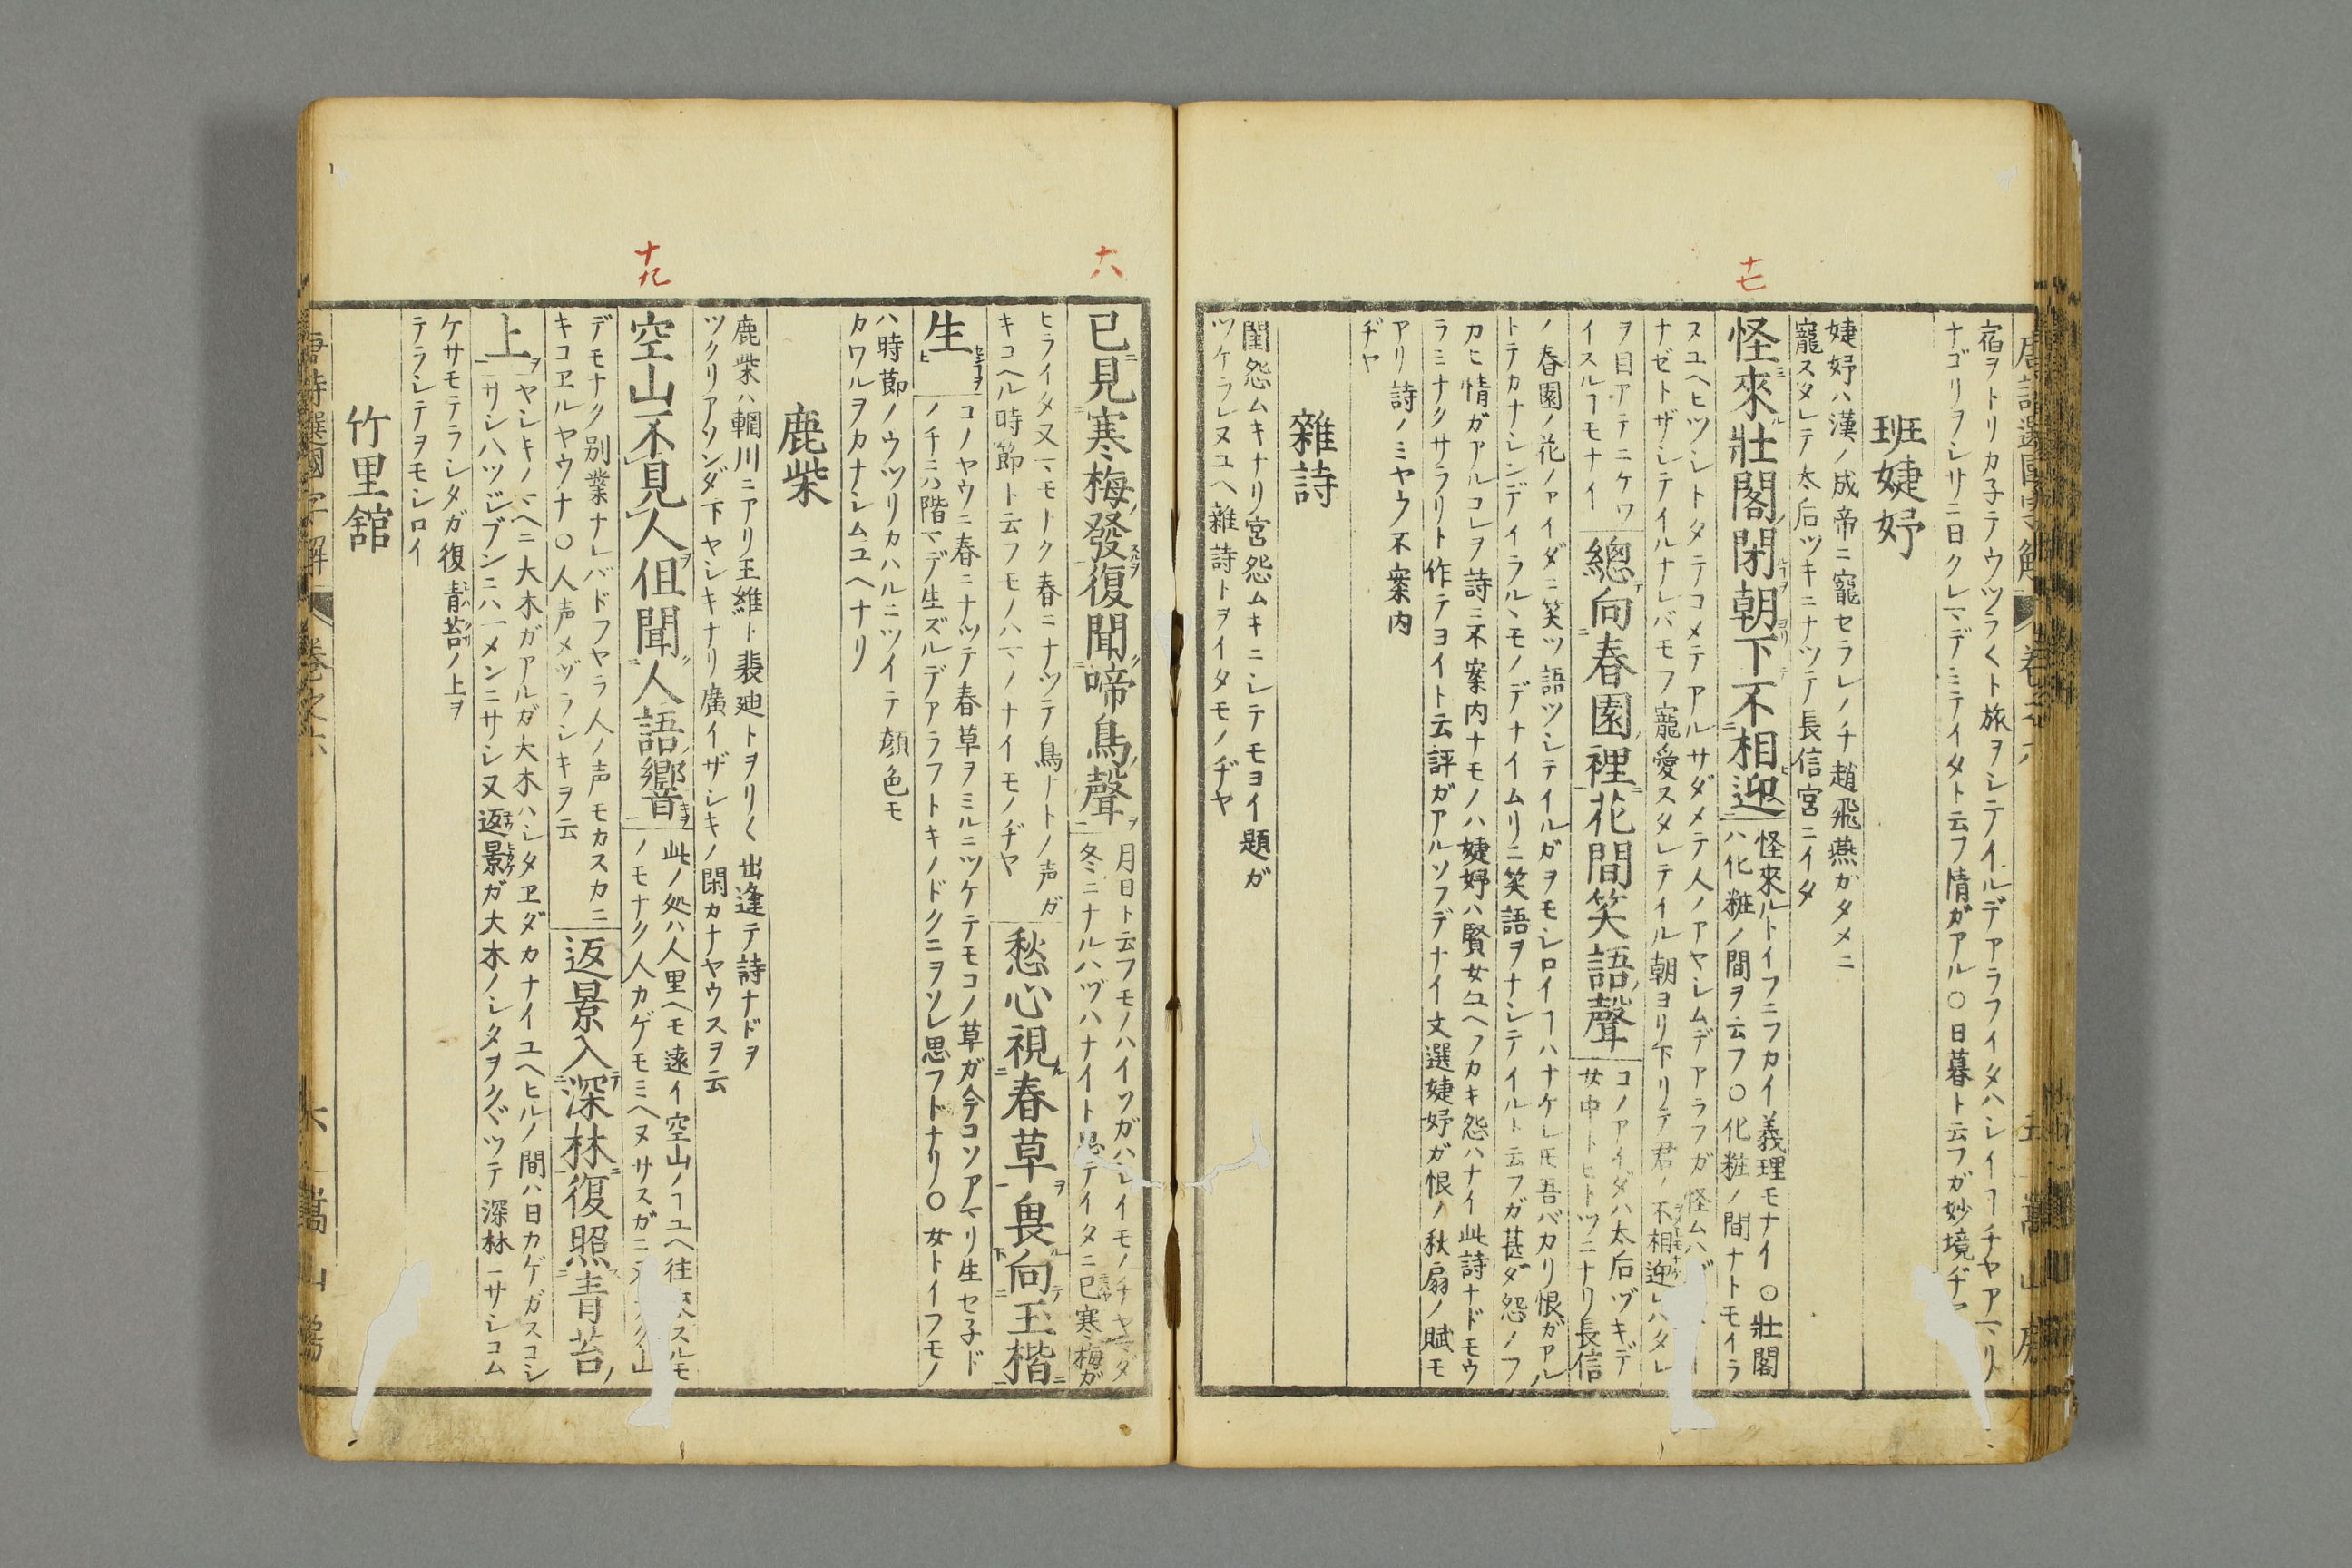 唐詩選國字解 卷之六
宿ヲトリカ子テウツラ〱ト旅ヲシテイルデアラフイタハシイヿチヤアマリ
ナゴリヲシサニ日クレマデミテイタト云フ情ガアル〇日暮ト云フガ妙境ヂヤ
班婕妤
婕妤ハ漢ノ成帝ニ寵セラレノチ趙飛燕ガタメニ
寵スタレテ太后ツキニナツテ長信宮ニイタ
十七
怪來壯閣閉朝下不相迎
怪來ルトイフニフカイ義理モナイ〇壯閣
ハ化粧ノ間ヲ云フ〇化粧ノ間ナトモイラ
ヌユヘヒツシトタテコメテアルサダメテ人ノアヤシムデアラフガ怪ムハ
ナゼトザシテイルナレバモフ寵愛スタレテイル朝ヨリ下リテ君ノ不相迎レハタレ
ヲ目アテニケワ
イスルヿモナイ
總向春園裡花間笑語聲
コノアイダハ太后ヅキデ
女中トヒトツニナリ長信
ノ春園ノ花ノアイダニ笑ツ語ツシテイルガヲモシロイヿハナケレモ吾バカリ恨ガアル
トテカナシンデイラルヽモノデナイムリニ笑語ヲナシテイルト云フガ甚ダ怨ノフ
カヒ情ガアルコレヲ詩ニ不案内ナモノハ婕妤ハ賢女ユヘフカキ怨ハナイ此詩ナドモウ
ラミナクサラリト作テヨイト云評ガアルソフデナイ文選婕妤ガ恨ノ秋扇ノ賦モ
アリ詩ノミヤウ不案内
ヂヤ
雜詩
閨怨ムキナリ宮怨ムキニシテモヨイ題ガ
ツケラレヌユヘ雜詩トヲイタモノヂヤ
十八
已見寒梅發復聞啼鳥聲
月日ト云フモノハイソガハシイモノチヤマダ
冬ニナルハヅハナイト思テイタニ已寒梅ガ
ヒライタ又マモナク春ニナツテ鳥ナトノ声ガ
キコヘル時節ト云フモノハマノナイモノヂヤ
愁心視春草畏向玉楷
生
コノヤウニ春ニナツテ春草ヲミルニツケテモコノ草ガ今コソアマリ生セ子ド
ノチニハ階マデ生ズルデアラフトキノドクニヲソレ思フトナリ〇女トイフモノ
ハ時節ノウツリカハルニツイテ顔色モ
カワルヲカナシムユヘナリ
鹿柴
鹿柴ハ輞川ニアリ王維ト裴廸トヲリ〱出逢テ詩ナドヲ
ツクリアソンダ下ヤシキナリ廣イザシキノ閑カナヤウスヲ云
十九
空山不見人伹聞人語響
此ノ処ハ人里ヘモ遠イ空山ノヿユヘ往來スルモ
ノモナク人カゲモミヘヌサスガニ
デモナク別業ナレバドフヤラ人ノ声モカスカニ
キコヱルヤウナ〇人声メヅラシキヲ云
返景入深林復照青苔
上
ヤシキノマヘニ大木ガアルガ大木ハシタヱダカナイユヘヒルノ間ハ日カゲガスコシ
サシハツジブンニハ一メンニサシ又返景ガ大木ノシタヲクヾツテ深林ニサシコム
ケサモテラシタガ復青苔ノ上ヲ
テラシテヲモシロイ
竹里舘
唐詩選國字解 卷之六 六 嵩山房